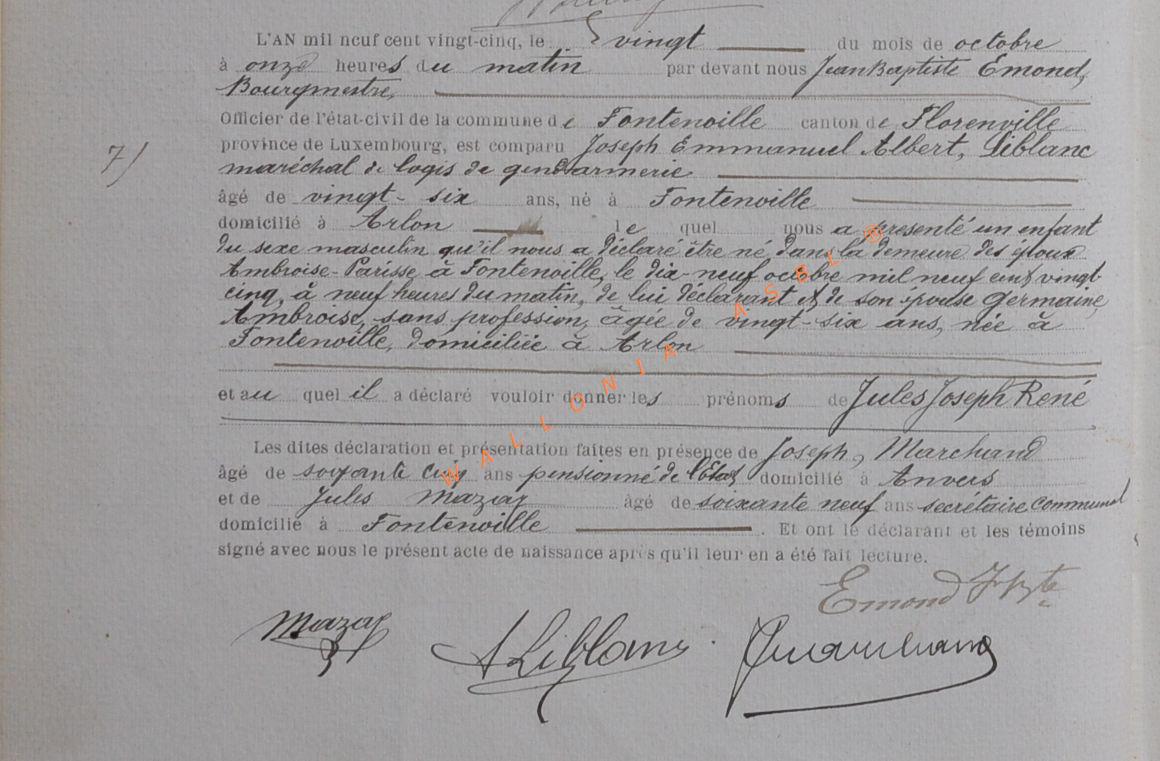 L'AN mil neuf cent vingt-cinq, le vingt du mois de octobre
à onze heures du matin par devant nous Jean Baptiste Emond,
Bourgmestre,
Officier de l'état-civil de la commune de Fontenoille canton de Florenville
7/ province de Luxembourg, est comparu Joseph Emmanuel Albert, Liblanc
maréchal de logis de gendarmerie
âgé de vingt-six ans, né à Fontenoille
domicilié à Arlon le quel nous a présenté un enfant
du sexe masculin qu'il nous a déclaré être né dans la demeure des époux
Ambroise-Parisse à Fontenoille, le dix-neuf octobre mil neuf cent vingt
cinq, à neuf heures du matin, de lui déclarant et de son épouse Germaine,
Ambroise, sans profession, âgée de vingt-six ans, née à
Fontenoille, domiciliée à Arlon
et au quel il a déclaré vouloir donner les prénoms de Jules Joseph René
Les dites déclaration et présentation faites en présence de Joseph, Marchand
âgé de soixante cinq ans pensionné de l'Etat domicilié à Anvers
et de Jules Mazay âgé de soixante neuf ans secrétaire communal
domicilié à Fontenoille . Et ont le déclarant et les témoins
signé avec nous le présent acte de naissance après qu'il leur en a été fait lecture.
Emond
Mazay A Liblanc JMarchand
WALLONIA ASBL ®